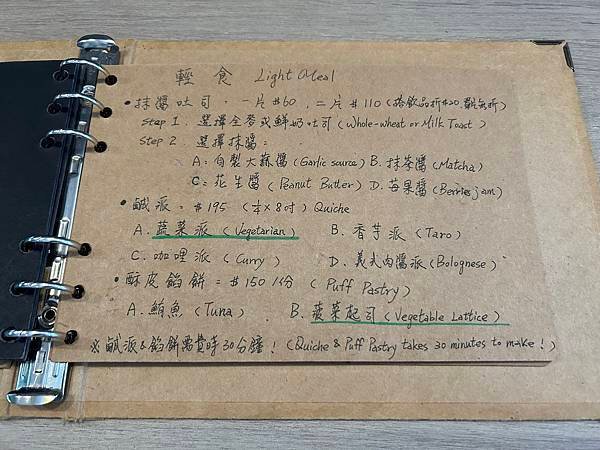 輕食 Light Meal
•抹醬吐司. 一片 $60 , 二片 $110 (搭飲品折$20
Step 1. 選擇全麥或鮮奶吐司 (Whole-wheat or Milk Toast)
Step 2. 選擇抹醬:
A: 自製大蒜醬 (Garlic source) B. 抹茶醬 (Matcha)
C: 花生醬 (Peanut Butter) D. 莓果醬 (Berries jam)
•鹹派. $195 (¼ × 8吋) Quiche
A. 蔬菜派 (Vegetarian) B. 香芋派 (Taro)
C. 咖哩派 (Curry) D. 義式肉醬派 (Bolognese)
•酥皮餡餅 = $150 1份 (Puff Pastry)
A. 鮪魚 (Tuna) B. 菠菜起司 (Vegetable Lattice)
※鹹派&餡餅需費時30分鐘! (Quiche & Puff Pastry takes 30 minutes to make!)